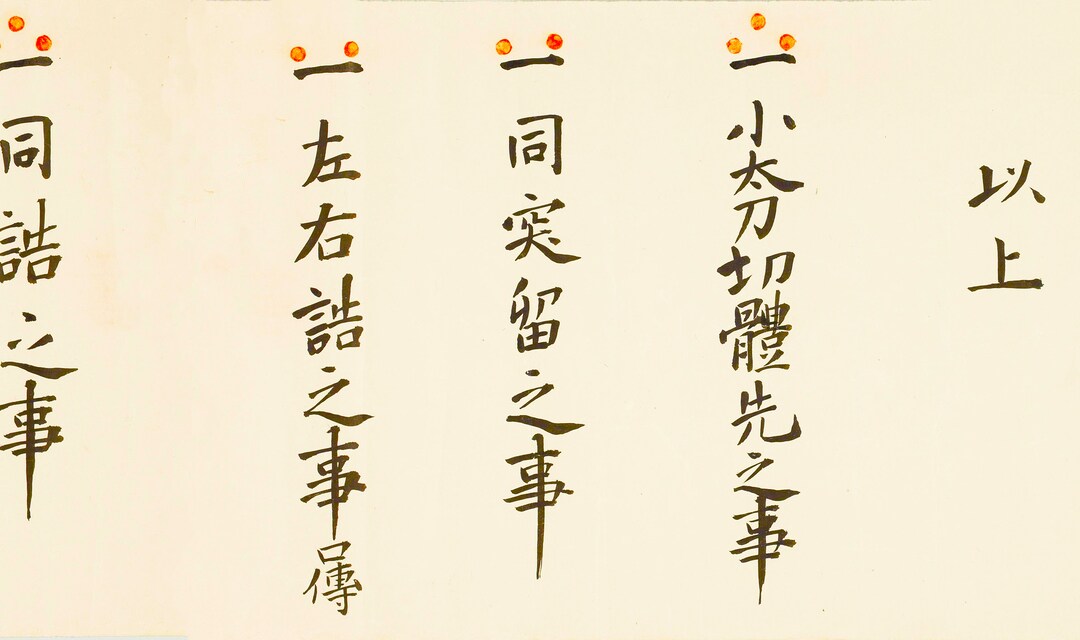 以上
一 小太刀切體先之事
一 同突留之事
一 左右誥之事 口傳
一 同誥之事